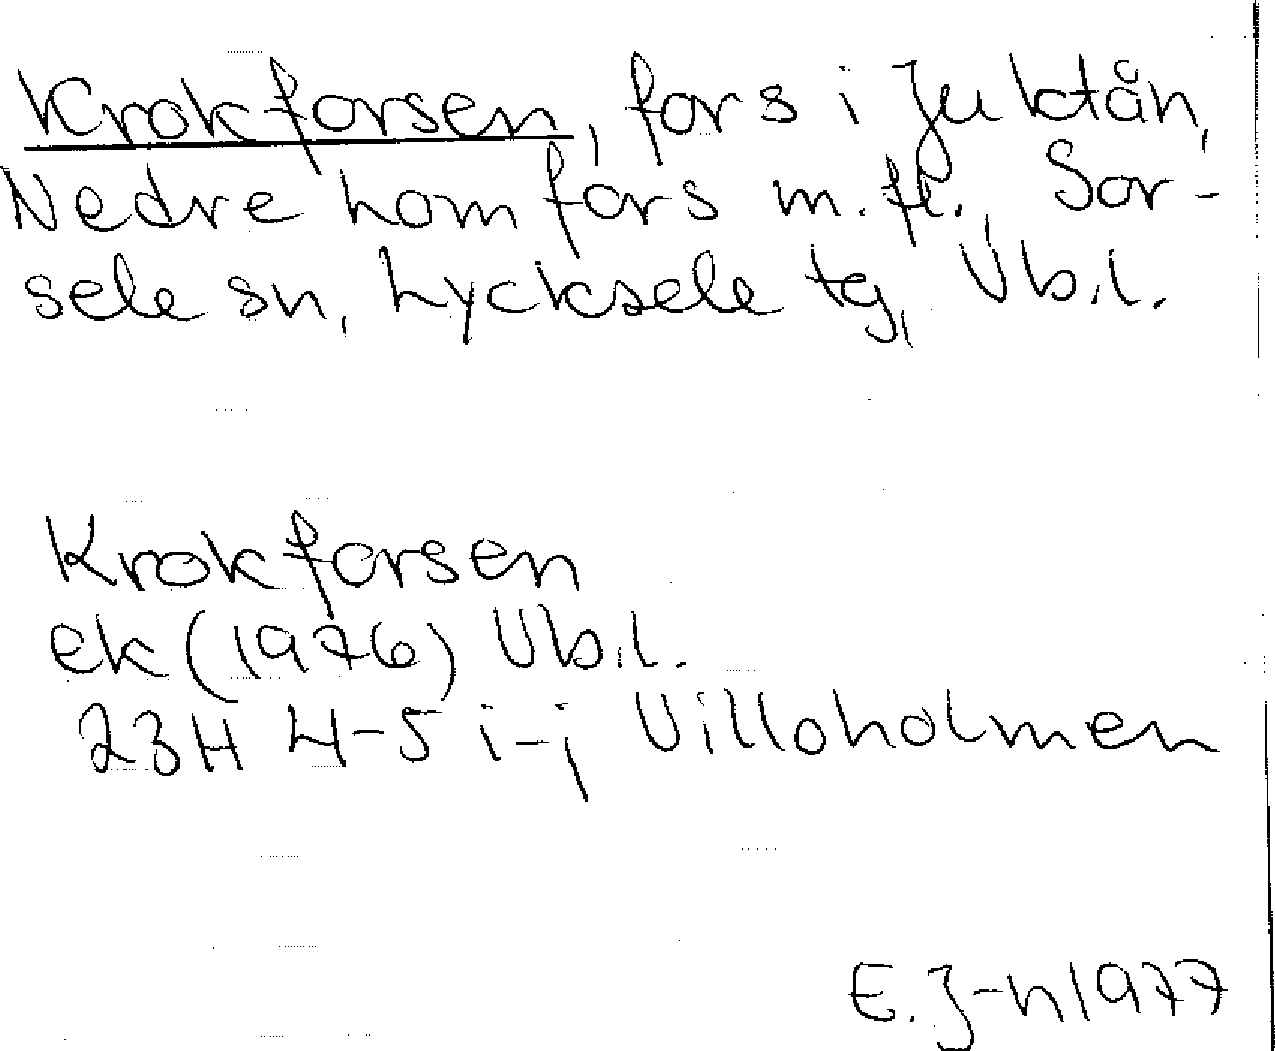 Krokforsen, fors i Juktån,
Nedre Lomfors m.fl., Sor-
sele sn, Lycksele tg, Vb.l.
Krokforsen
ek (1976) Vb.l.
23H 4-5 i-j Villoholmen
E.J-n 1977